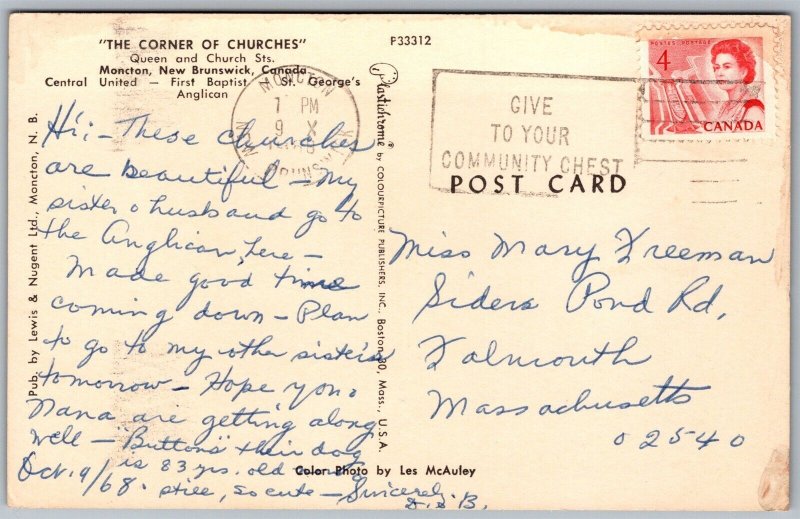 "THE CORNER OF CHURCHES"
Queen and Church Sts.
Moncton, New Brunswick, Canada
Central United — First Baptist — St. George's
Anglican
P33312
Hi:- These churches
are beautiful - My
sister & husband go to
the Anglican, here -
Made good time
coming down - Plan
to go to my other sister's
tomorrow - Hope you &
Nana are getting along
well - "Buttons" their dog
is 83 yrs. old and
Oct. 9/68. still, so cute - Sincerely,
D. & B.
Pub. by Lewis & Nugent Ltd., Moncton, N. B.
Plastichrome® by COLOURPICTURE PUBLISHERS, INC., Boston 30, Mass., U.S.A.
MONCTON
1 PM
9 X
GIVE
TO YOUR
COMMUNITY CHEST
POSTES POSTAGE
4
CANADA
POST CARD
Miss Mary Freeman
Siders Pond Rd,
Falmouth
Massachusetts
02540
Color Photo by Les McAuley